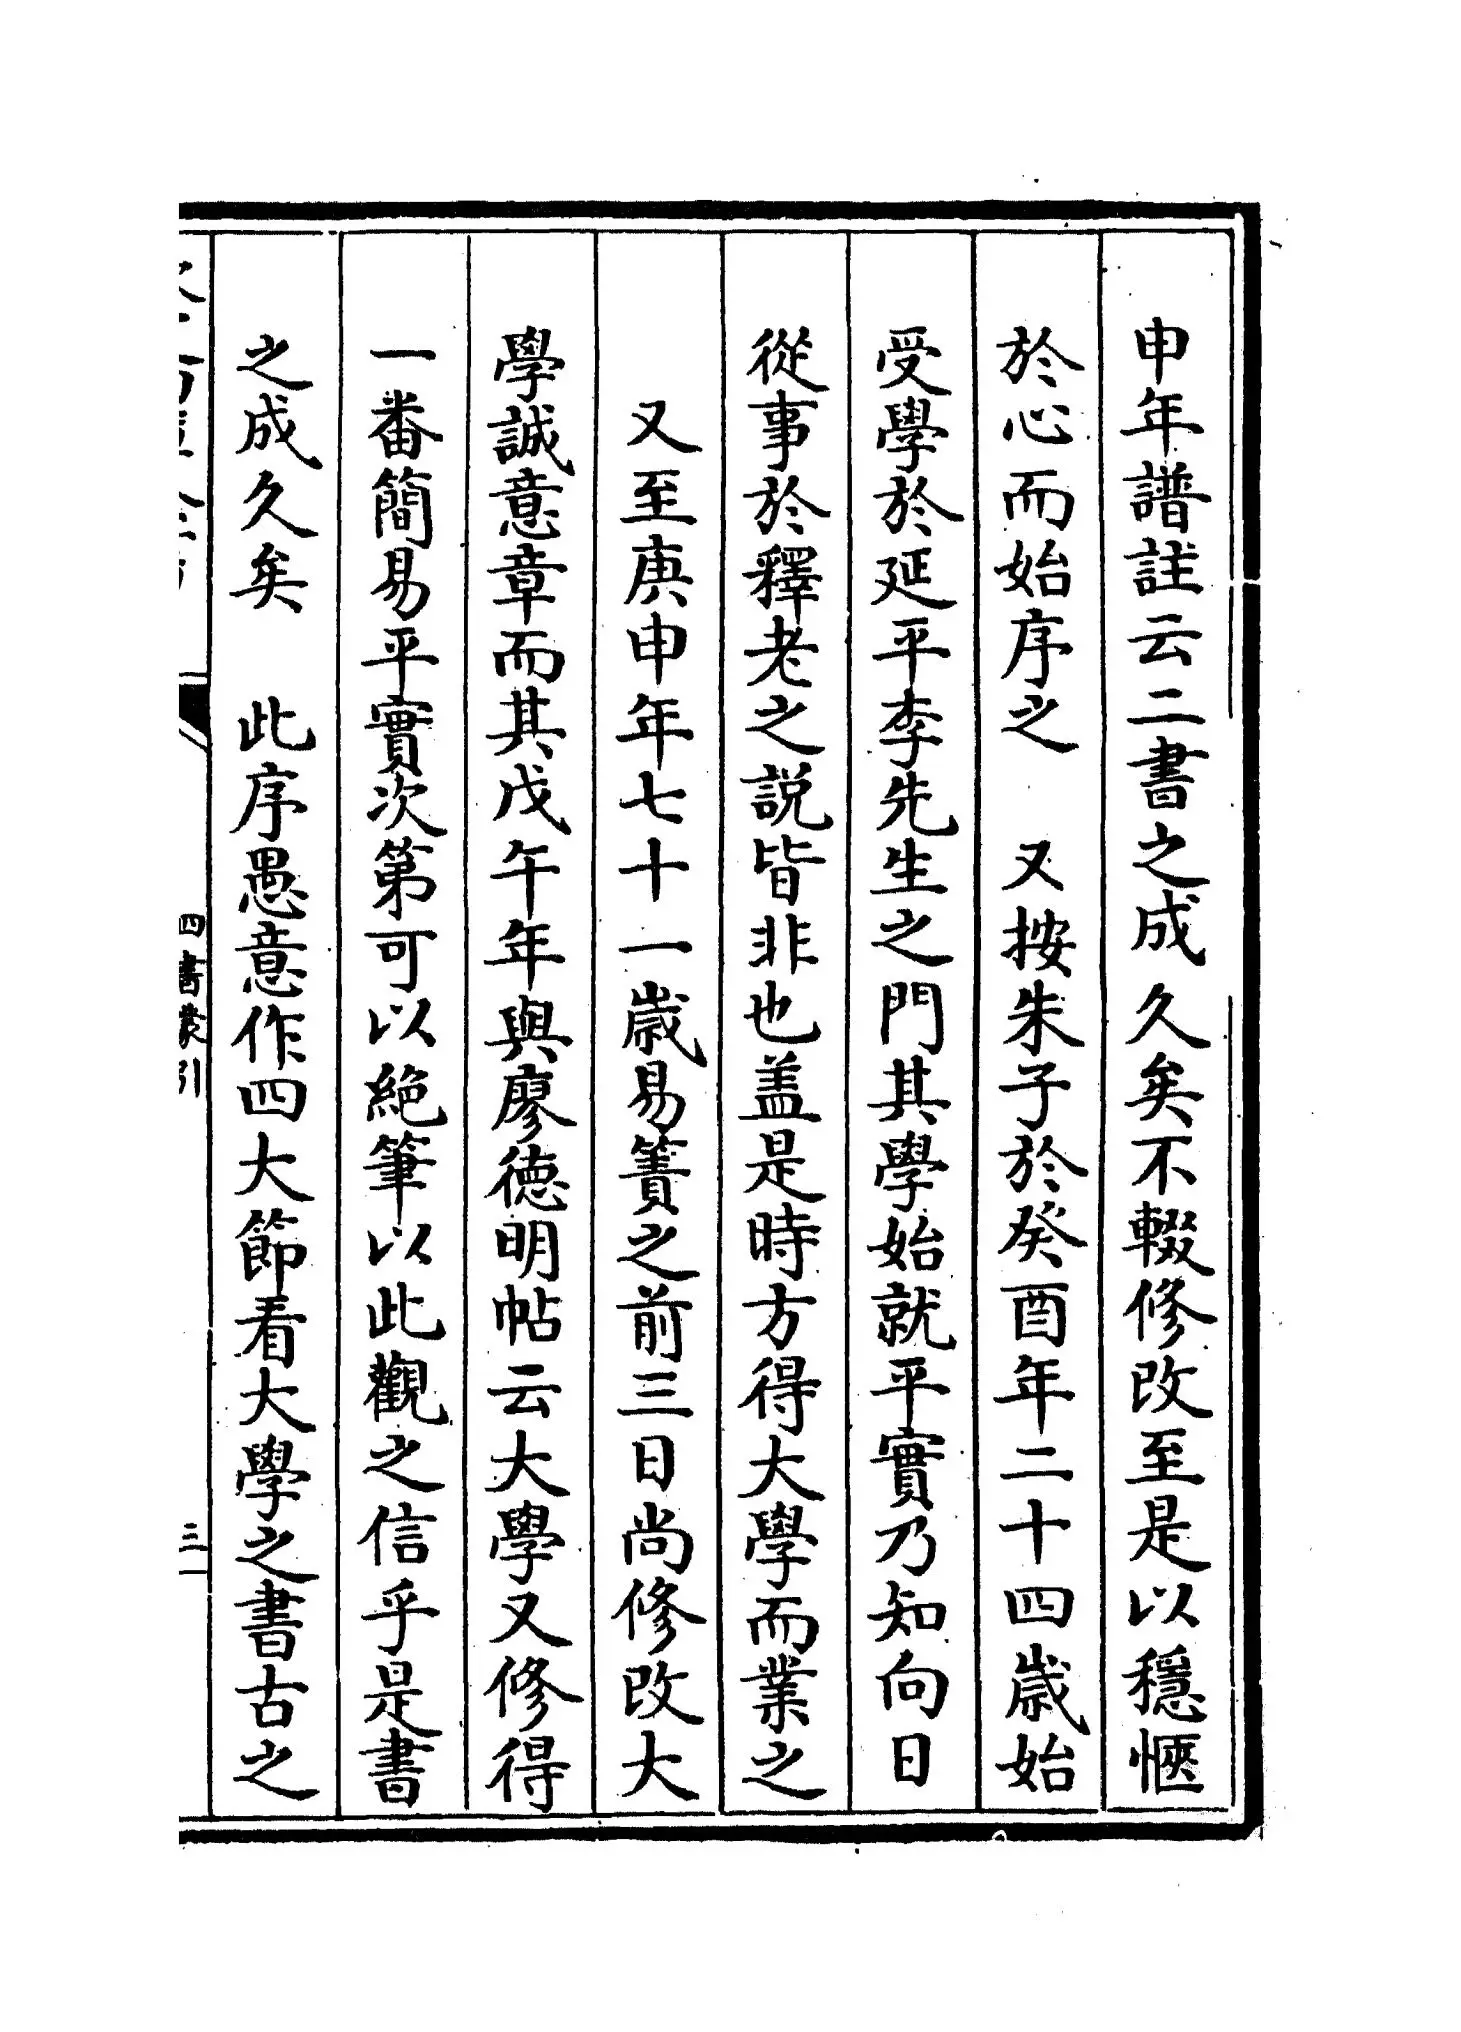 申年譜註云二書之成久矣不輟修改至是以穩愜
於心而始序之　又按朱子於癸酉年二十四歲始
受學於延平李先生之門其學始就平實乃知向日
從事於釋老之説皆非也盖是時方得大學而業之
又至庚申年七十一歲易簀之前三日尚修改大
學誠意章而其戊午年與廖德明帖云大學又修得
一番簡易平實次第可以絶筆以此觀之信乎是書
之成久矣　此序愚意作四大節看大學之書古之
四書蒙引
三